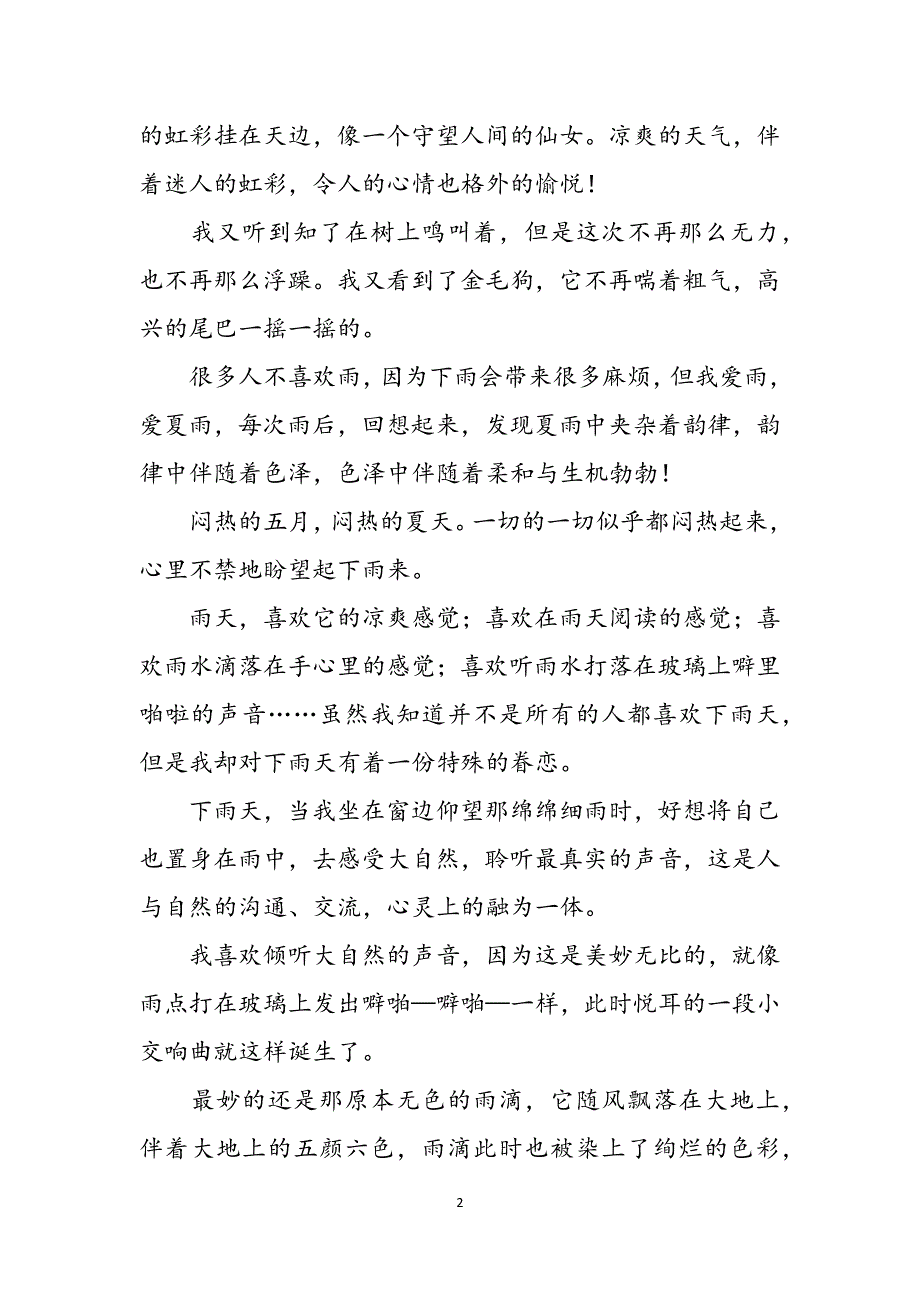 的虹彩挂在天边，像一个守望人间的仙女。凉爽的天气，伴
着迷人的虹彩，令人的心情也格外的愉悦！
我又听到知了在树上鸣叫着，但是这次不再那么无力，
也不再那么浮躁。我又看到了金毛狗，它不再喘着粗气，高
兴的尾巴一摇一摇的。
很多人不喜欢雨，因为下雨会带来很多麻烦，但我爱雨，
爱夏雨，每次雨后，回想起来，发现夏雨中夹杂着韵律，韵
律中伴随着色泽，色泽中伴随着柔和与生机勃勃！
闷热的五月，闷热的夏天。一切的一切似乎都闷热起来，
心里不禁地盼望起下雨来。
雨天，喜欢它的凉爽感觉；喜欢在雨天阅读的感觉；喜
欢雨水滴落在手心里的感觉；喜欢听雨水打落在玻璃上噼里
啪啦的声音……虽然我知道并不是所有的人都喜欢下雨天，
但是我却对下雨天有着一份特殊的眷恋。
下雨天，当我坐在窗边仰望那绵绵细雨时，好想将自己
也置身在雨中，去感受大自然，聆听最真实的声音，这是人
与自然的沟通、交流，心灵上的融为一体。
我喜欢倾听大自然的声音，因为这是美妙无比的，就像
雨点打在玻璃上发出噼啪—噼啪—一样，此时悦耳的一段小
交响曲就这样诞生了。
最妙的还是那原本无色的雨滴，它随风飘落在大地上，
伴着大地上的五颜六色，雨滴此时也被染上了绚烂的色彩，
2